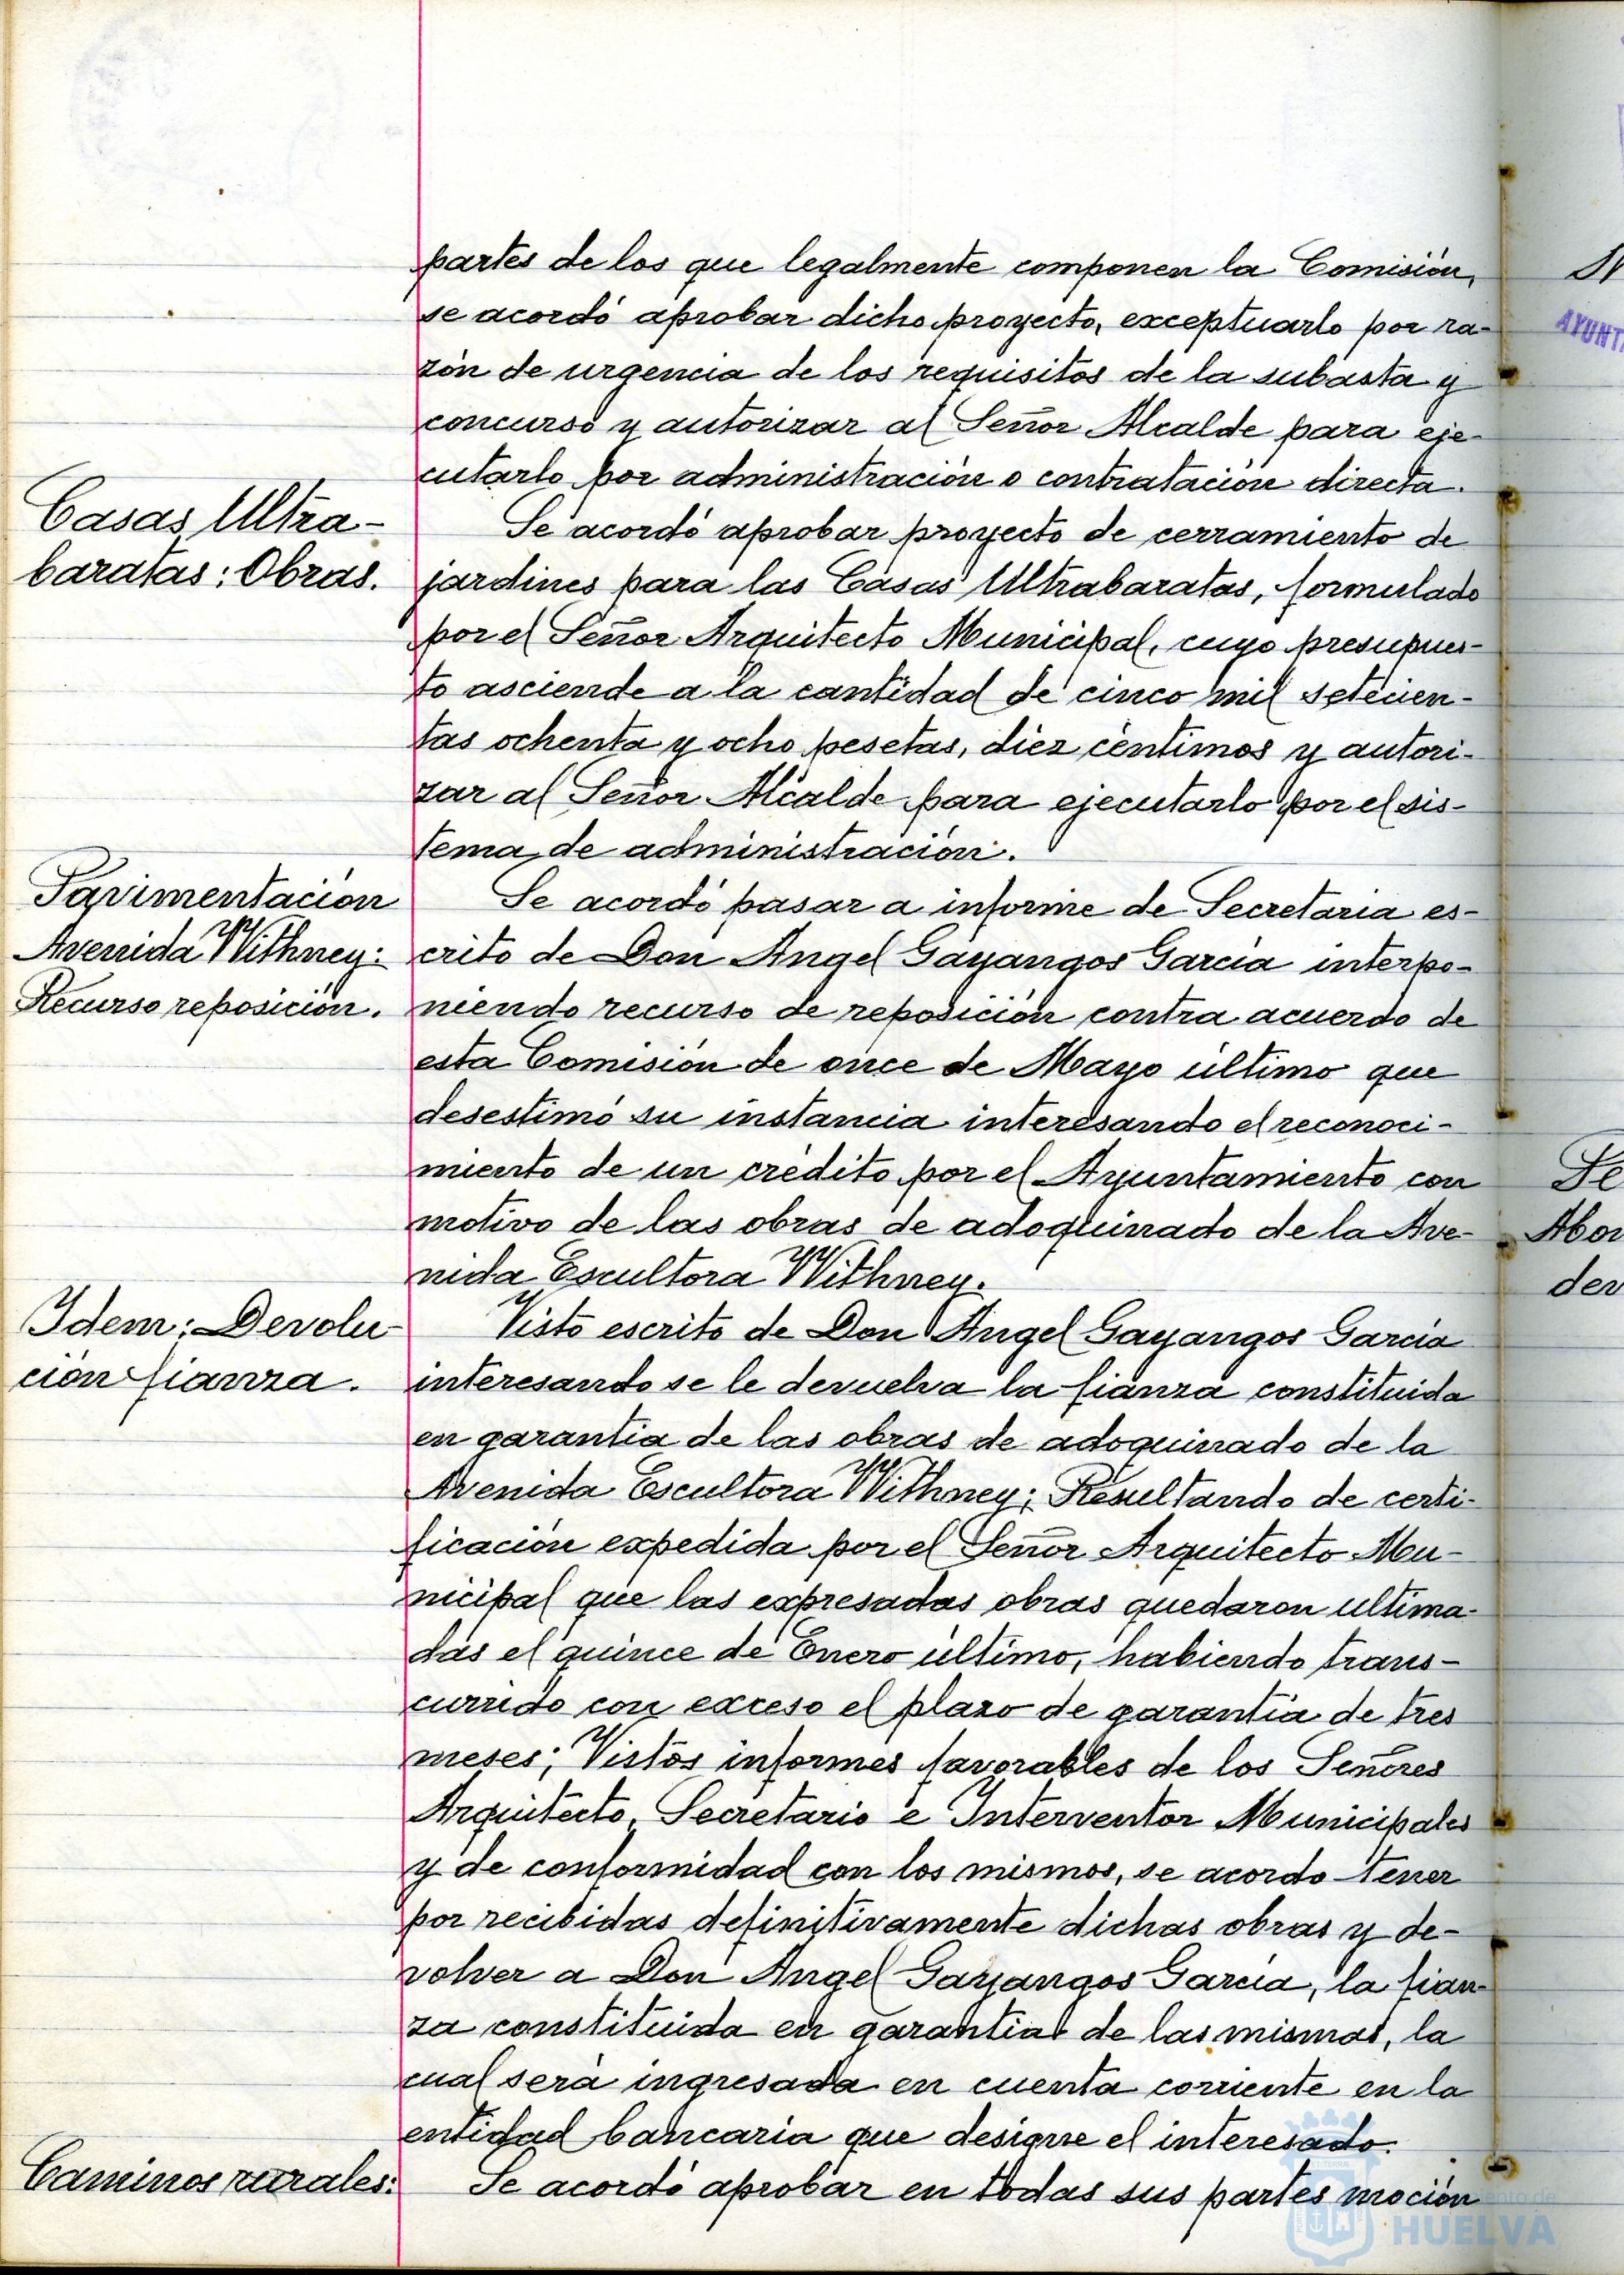 partes de los que legalmente componen la Comisión,
se acordó aprobar dicho proyecto, exceptuarlo por ra-
zón de urgencia de los requisitos de la subasta y
concurso y autorizar al Señor Alcalde para eje-
cutarlo por administración o contratación directa.
Casas Ultra-
baratas: Obras.
Se acordó aprobar proyecto de cerramiento de
jardines para las Casas Ultrabaratas, formulado
por el Señor Arquitecto Municipal, cuyo presupues-
to asciende a la cantidad de cinco mil setecien-
tas ochenta y ocho pesetas, diez céntimos y autori-
zar al Señor Alcalde para ejecutarlo por el sis-
tema de administración.
Pavimentación
Avenida Withney:
Recurso reposición.
Se acordó pasar a informe de Secretaria es-
crito de Don Angel Gayangos García interpo-
niendo recurso de reposición contra acuerdo de
esta Comisión de once de Mayo último que
desestimó su instancia interesando el reconoci-
miento de un crédito por el Ayuntamiento con
motivo de las obras de adoquinado de la Ave-
nida Escultora Withney.
Idem: Devolu-
ción fianza.
Visto escrito de Don Angel Gayangos García
interesando se le devuelva la fianza constituida
en garantía de las obras de adoquinado de la
Avenida Escultora Withney; Resultando de certi-
ficación expedida por el Señor Arquitecto Mu-
nicipal que las expresadas obras quedaron ultima-
das el quince de Enero último, habiendo trans-
currido con exceso el plazo de garantía de tres
meses; Vistos informes favorables de los Señores
Arquitecto, Secretario e Interventor Municipales
y de conformidad con los mismos, se acordo tener
por recibidas definitivamente dichas obras y de-
volver a Don Angel Gayangos García, la fian-
za constituida en garantia de las mismas, la
cual será ingresada en cuenta corriente en la
entidad bancaria que designe el interesado.
Caminos rurales:
Se acordó aprobar en todas sus partes moción
AYUNT
Abo
der
HUELVA